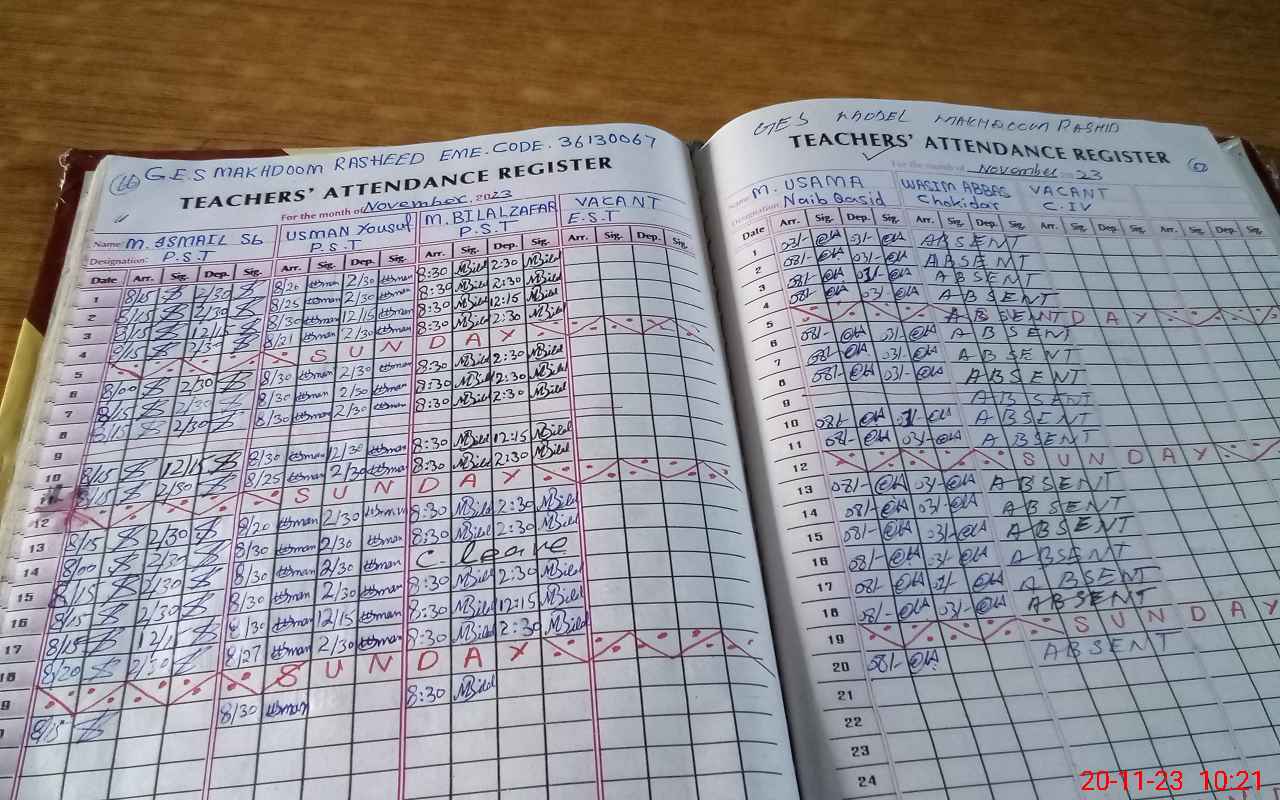 G.E.S MAKHDOOM RASHEED EME.CODE.36130067
TEACHERS' ATTENDANCE REGISTER
For the month of November 2023
Name M. ISMAIL Sb USMAN Yousuf M.BILALZAFAR VACANT
Designation: P.S.T P.S.T P.S.T E.S.T
Date Arr. Sig. Dep. Sig. Arr. Sig. Dep. Sig. Arr. Sig. Dep. Sig. Arr. Sig. Dep. Sig.
1 8/15 2/30 8/20 2/30 8:30 MBilal 2:30 MBilal
2 8/15 2/30 8/25 2/30 8:30 MBilal 2:30 MBilal
3 8/15 12/15 8/30 12/15 8:30 MBilal 12:15 MBilal
4 8/15 2/30 8/21 2/30 8:30 MBilal 2:30 MBilal
5 SUNDAY
6 8/00 2/30 8/30 2/30 8:30 MBilal 2:30 MBilal
7 8/15 2/30 8/30 2/30 8:30 MBilal 2:30 MBilal
8 8/15 2/30 8/30 2/30 8:30 MBilal 2:30 MBilal
9
10 8/15 12/15 8/30 12/30 8:30 MBilal 12:15 MBilal
11 8/15 2/30 8/25 2/30 8:30 MBilal 2:30 MBilal
12 SUNDAY
13 8/15 2/30 8/20 2/30 8:30 MBilal 2:30 MBilal
14 8/00 2/30 8/30 2/30 8:30 MBilal 2:30 MBilal
15 8/15 2/30 8/30 2/30 C. leave
16 8/15 2/30 8/30 2/30 8:30 MBilal 2:30 MBilal
17 8/15 12/15 8/30 12/15 8:30 MBilal 12:15 MBilal
18 8/20 2/30 8/27 2/30 8:30 MBilal 2:30 MBilal
SUNDAY
8/15 8/30 8:30 MBilal
GES MODEL MAKHDOOM RASHID
TEACHERS' ATTENDANCE REGISTER
For the month of November 2023
Name M. USAMA WASIM ABBAS VACANT
Designation: Naib Qasid Chokidar C.IV
Date Arr. Sig. Dep. Sig. Arr. Sig. Dep. Sig. Arr. Sig. Dep. Sig. Arr. Sig. Dep. Sig.
1 08/- 03/- ABSENT
2 08/- 03/- ABSENT
3 08/- 03/- ABSENT
4 08/- 03/- ABSENT
5 SUNDAY
6 08/- 03/- ABSENT
7 08/- 03/- ABSENT
8 08/- 03/- ABSENT
9 ABSENT
10 08/- 03/- ABSENT
11 08/- 03/- ABSENT
12 SUNDAY
13 08/- 03/- ABSENT
14 08/- 03/- ABSENT
15 08/- 03/- ABSENT
16 08/- 03/- ABSENT
17 08/- 03/- ABSENT
18 08/- 03/- ABSENT
19 SUNDAY
20 08/- ABSENT
21
22
23
24
20-11-23 10:21